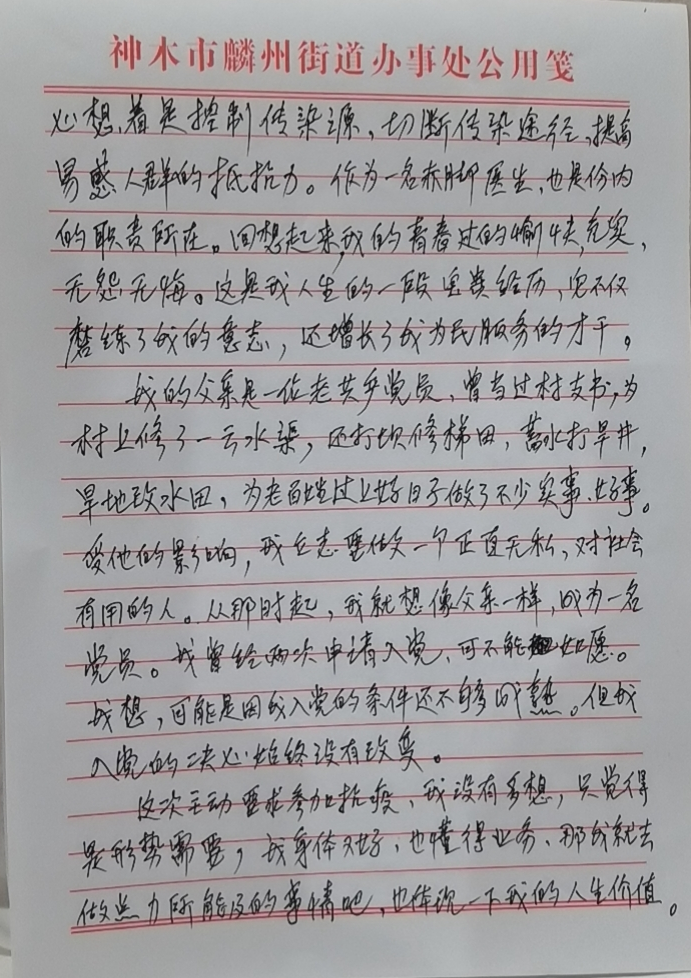 神木市麟州街道办事处公用笺
心想着是控制传染源、切断传染途径、提高
易感人群的抵抗力。作为一名赤脚医生,也是份内
的职责所在。回想起来,我的青春过的愉快,充实,
无怨无悔。这是我人生的一段宝贵经历,它不仅
磨练了我的意志,还增长了我为民服务的才干。
我的父亲是一位老共产党员,曾当过村支书,为
村上修了一条水渠,还打坝修梯田,蓄水打旱井,
旱地改水田,为老百姓过上好日子做了不少实事、好事。
受他的影响,我立志要做一个正直无私,对社会
有用的人。从那时起,我就想像父亲一样,成为一名
党员。我曾经两次申请入党,可不能如愿。
我想,可能是因我入党的条件还不够成熟。但我
入党的决心始终没有改变。
这次主动要求参加抗疫,我没有多想,只觉得
是形势需要,我身体又好,也懂得业务、那我就去
做点力所能及的事情吧,也体现一下我的人生价值。